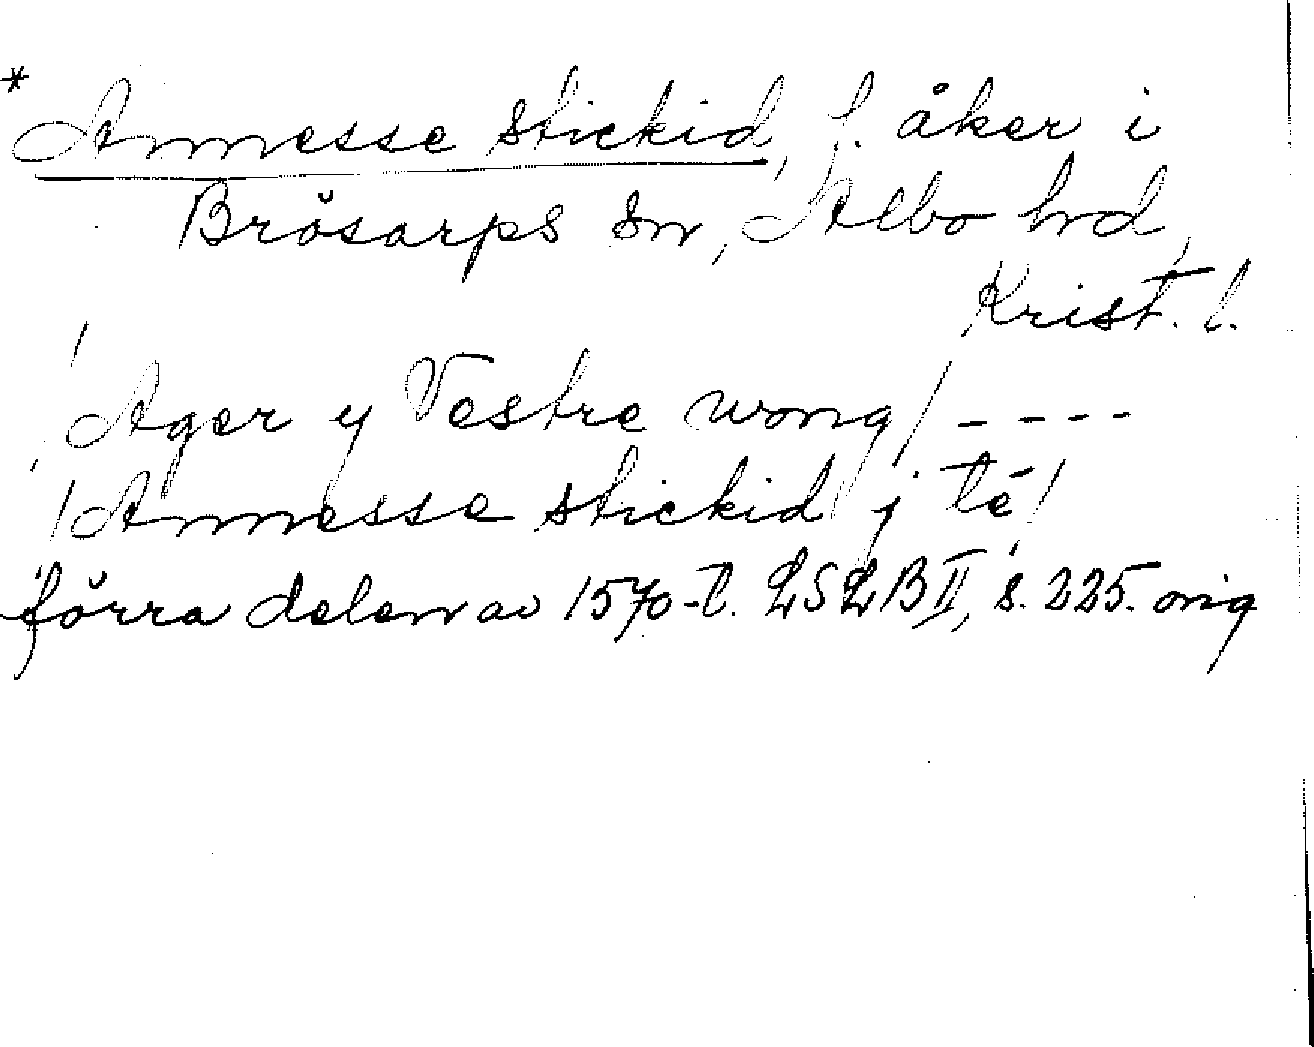 * Annesse stickid, f. åker i
Brösarps sn, Albo hd,
Krist. l.
/Ager y Vestre wong/ ----
/Annesse stickid/ j té/
förra delen av 1570-t. LSLB II, s. 225. orig